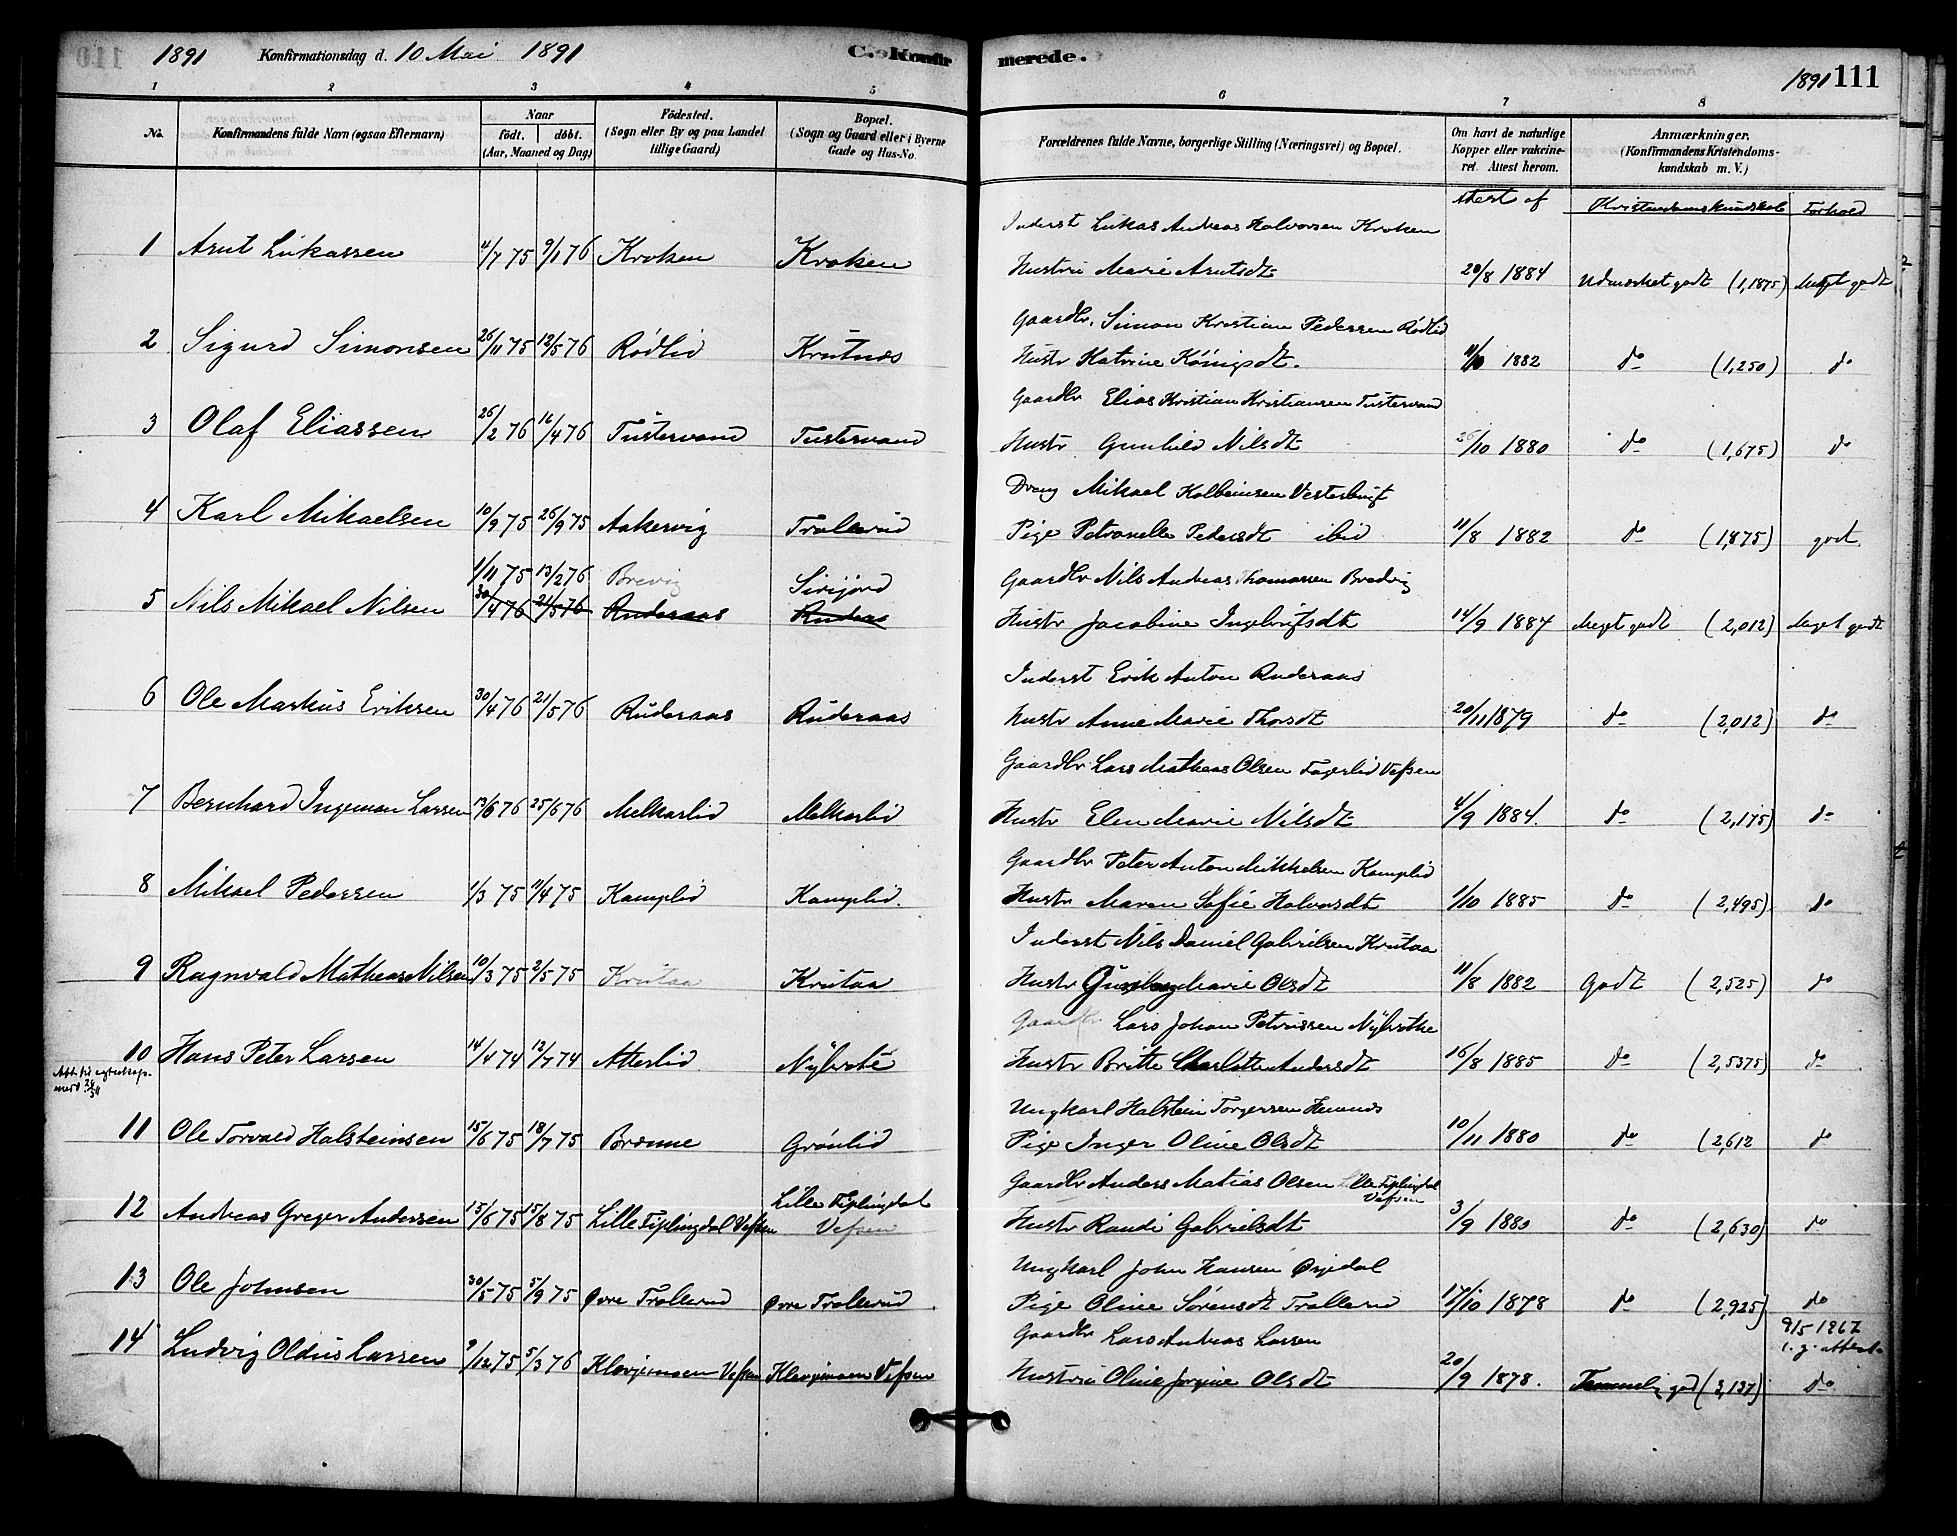 1891 Konfirmationsdag d. 10 Mai 1891 C. Konfirmerede. 1891 111
1 2 3 4 5 6 7 8
No. Konfirmandens fulde Navn (ogsaa Efternavn) Naar født. døbt. (Aar, Maaned og Dag) Födested. (Sogn eller By og paa Landet tillige Gaard) Bopæl. (Sogn og Gaard eller i Byerne Gade og Hus-No. Forældrenes fulde Navne, borgerlige Stilling (Næringsvei) og Bopæl. Om havt de naturlige Kopper eller vakcineret. Attest herom. Anmærkninger. (Konfirmandens Kristendomskundskab m. V.)
Attest af Kristendomskundskab Forhold
Inderst Lukas Andreas Halvorsen Kroken
1 Arnt Lukassen 4/7 75 9/1 76 Kroken Kroken Hustru Marie Arntsdt 20/8 1884 Udmærket godt (1,1875) Meget godt
Gaardbr. Simon Kristian Pedersen Rödlid
2 Sigurd Simonsen 26/11 75 12/5 76 Rödlid Krutnes Hustr Katrine Königsdt. 11/10 1882 do (1,250) do
Gaardbr Elias Kristian Kristiansen Tustervand
3 Olaf Eliassen 26/2 76 16/4 76 Tustervand Tustervand Hustr Gunhild Nilsdt 26/10 1880 do (1,675) do
Dreng Mikael Kolbeinsen Vesterbugt
4 Karl Mikaelsen 10/9 75 26/9 75 Aakervig Trollerud Pige Petronelle Pedersdt ibid 11/8 1882 do (1,875) godt
1/11 75 13/2 76 Brevig Sirijord Gaardbr Nils Andreas Thomassen Bredvig
5 Nils Mikael Nilsen 30/4 76 21/5 76 Ruderaas Ruderas Hustr Jacobine Ingebrigtsdt 14/9 1884 Meget godt (2,012) Meget godt
Inderst Erik Anton Ruderaas
6 Ole Markus Eriksen 30/4 76 21/5 76 Ruderaas Ruderaas Hustr Anne Marie Thorsdt 20/11 1879 do (2,012) do
Gaardbr Lars Matheas Olsen Fagerlid Vefsen
7 Bernhard Ingeman Larsen 13/6 76 25/6 76 Melkarlid Melkarlid Hustr Elen Marie Nilsdt 4/9 1884. do (2,175) do
Gaardbr Peter Anton Mikkelsen Kamplid
8 Mikael Pedersen 1/3 75 11/4 75 Kamplid Kamplid. Hustr Maren Sofie Halvorsdt 1/10 1885 do (2,495) do
Inderst Nils Daniel Gabrielsen Krutaa
9 Ragnvald Matheas Nilsen 10/3 75 2/5 75 Krutaa Krutaa Hustr Gunborg Marie Olsdt 11/8 1882 Godt (2,525) do
Gaardbr Lars Johan Petrussen Nybrotte
10 Hans Peter Larsen 14/4 74 12/7 74 Atterlid Nybrote Hustr Britte Charlotte Andersdt 16/8 1885 do (2,5375) do
Ungkarl Halstein Torgersen Hemnes
11 Ole Torvald Halsteinsen 15/6 75 18/7 75 Brønne Grönlid Pige Inger Oline Olsdt 10/11 1880 do (2,612 do
Lille Fiplingdal Gaardbr Anders Matias Olsen Lille Fiplingdal Vefsen
12 Andreas Greger Andersen 15/6 75 15/8 75 Lille Fiplingdal Vefsen Vefsen Hustr Randi Gabrielsdt 3/9 1880 do (2,630) do
Ungkarl John Hansen
13 Ole Johnsen 30/5 75 5/9 75 Øvre Trollerud Øvre Trollerud Pige Oline Sörensdt Trollerud 17/10 1878 do (2,925) do
Gaardbr Lars Andreas Larsen 9/5 1962
14 Ludvig Oldus Larsen 9/12 75 5/3 76 Klovjemoen Vefsen Klovjemoen Vefsen Hustru Oline Jorgine Olsdt 20/9 1878. Temmelig god (3,137) do